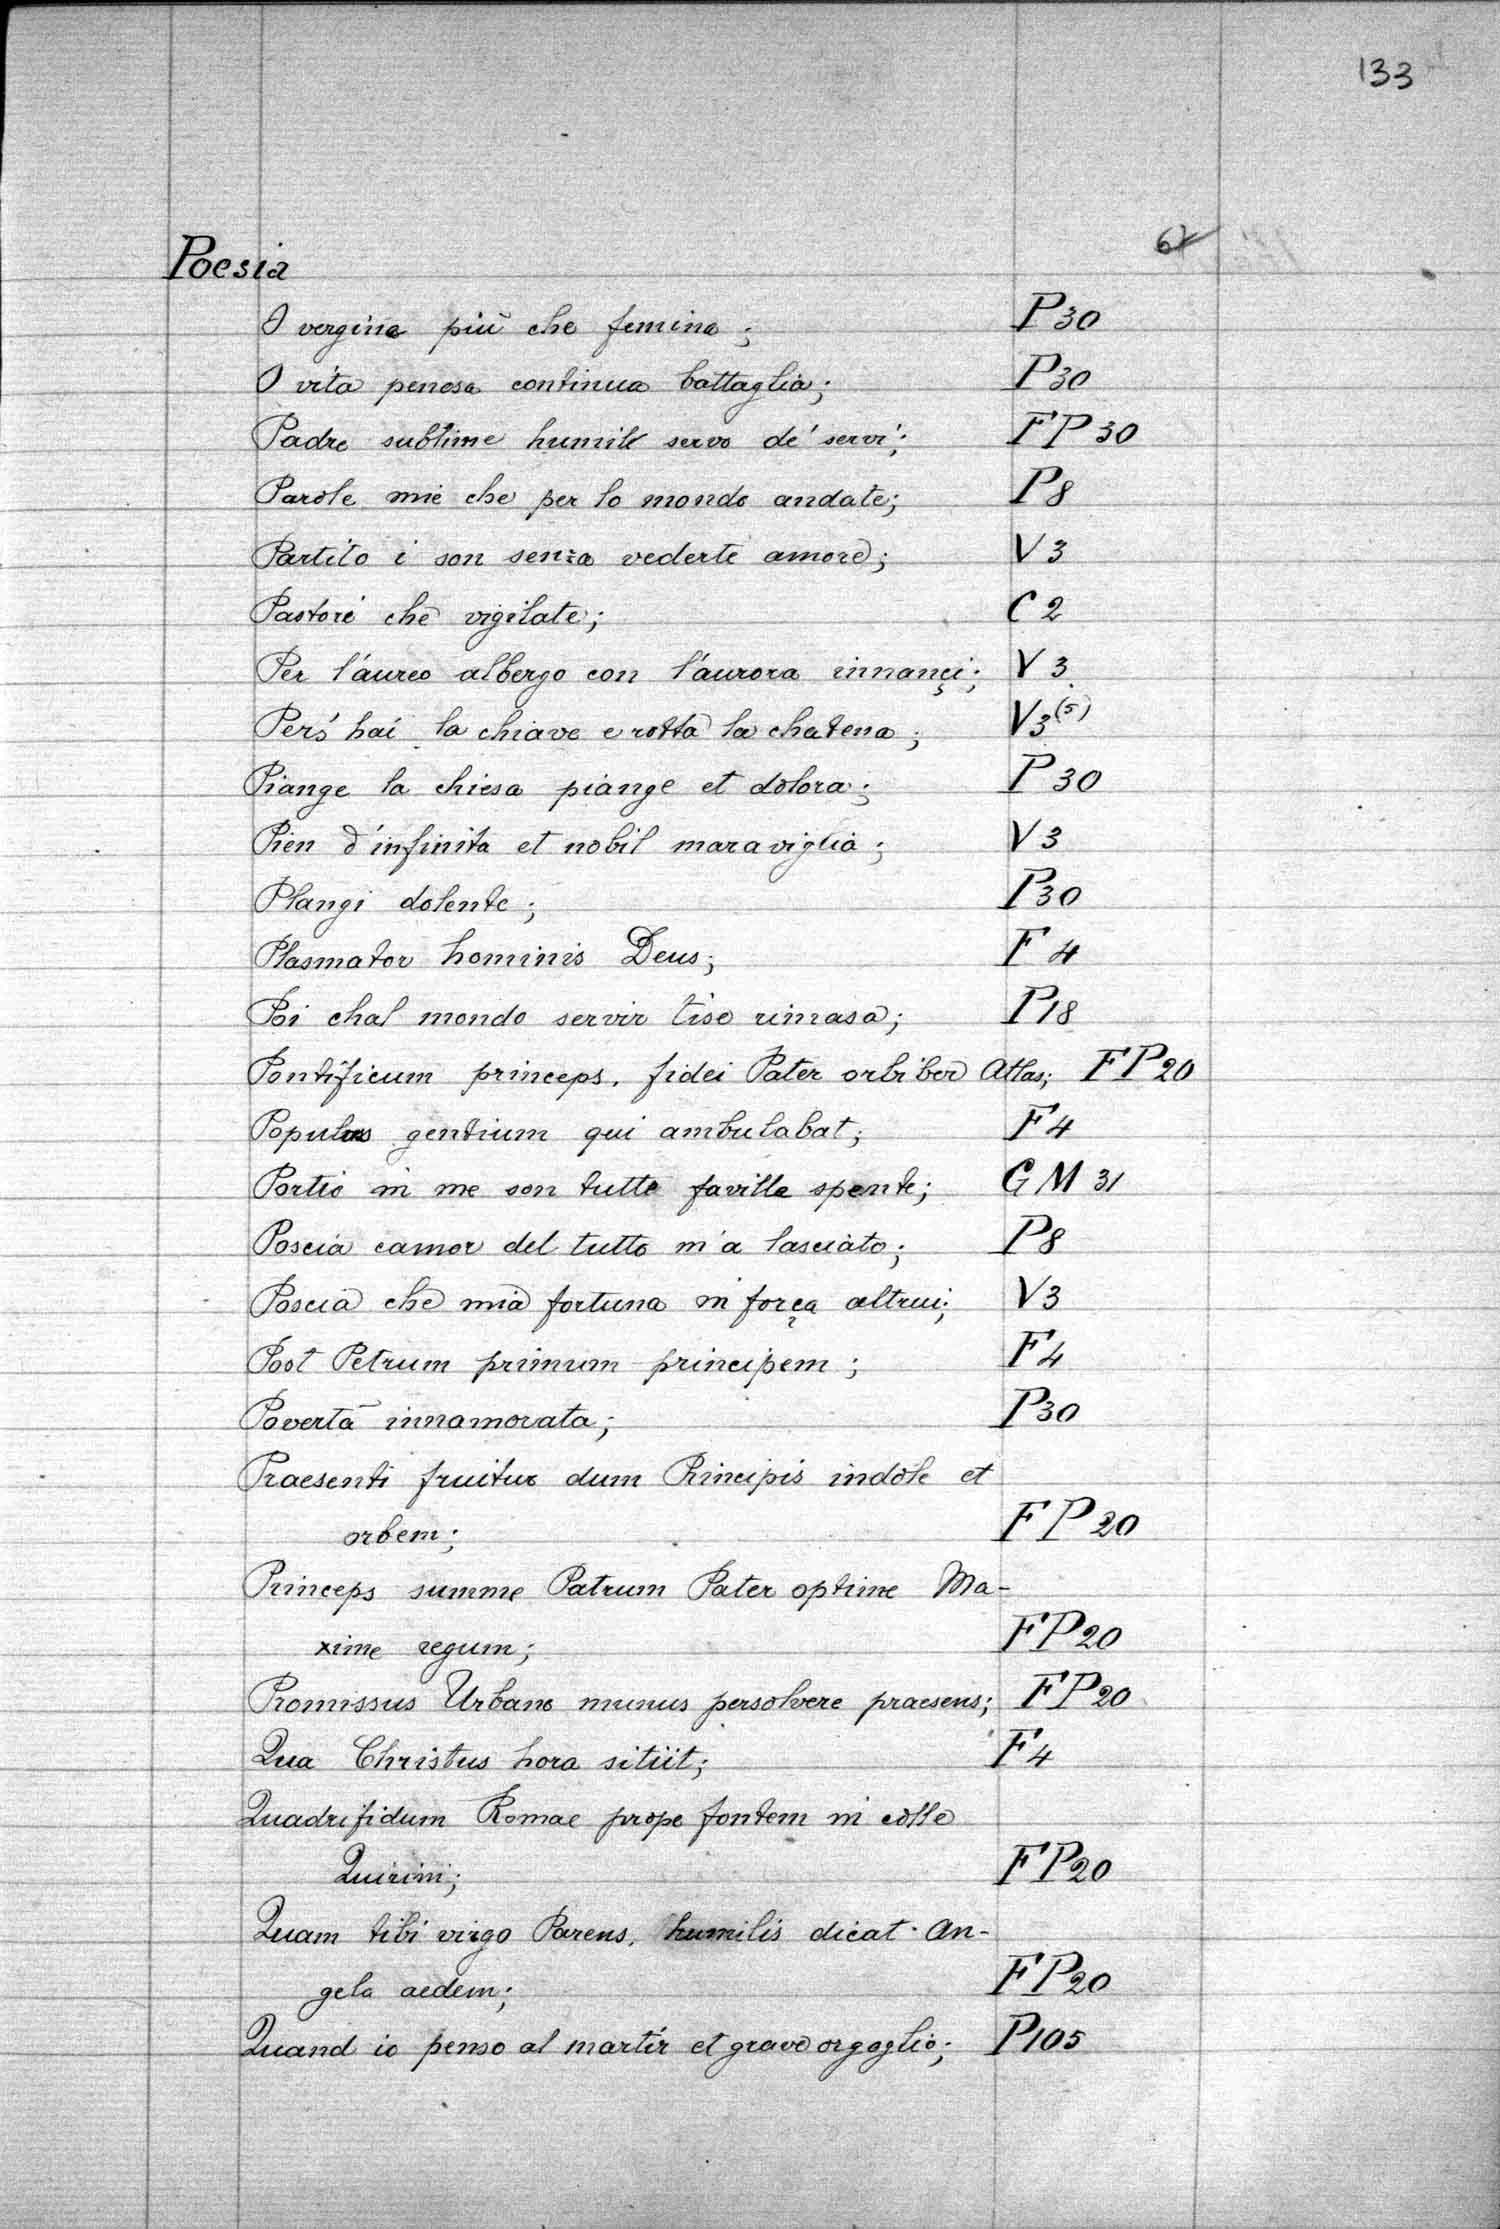 133
Poesia
O vergine più che femina; P30
O vita penosa continua battaglia; P30
Padre sublime humile servo de' servi; FP30
Parole mie che per lo mondo andate; P8
Partito i son senza vederte amore; V3
Pastori che vigilate; C2
Per l'aureo albergo con l'aurora innançi; V3
Però hai la chiave e rotta la chatena; V3(5)
Piange la chiesa piange et dolora; P30
Pien d'infinita et nobil maraviglia; V3
Plangi dolente; P30
Plasmator hominis Deus; F4
Poi chal mondo servir tiso rimasa; P18
Pontificum princeps, fidei Pater orbiber Atlas; FP20
Populus gentium qui ambulabat; F4
Portio in me son tutte faville spente; GM31
Poscia camor del tutto m'a lasciato; P8
Poscia che mia fortuna in força altrui; V3
Post Petrum primum principem; F4
Povertà innamorata; P30
Praesenti fruitur dum Principis indole et
orbem; FP20
Princeps summe Patrum Pater optime Ma-
xime regum; FP20
Promissus Urbano munus persolvere praesens; FP20
Qua Christus hora sitiit; F4
Quadrifidum Romae prope fontem in colle
Quirini; FP20
Quam tibi virgo Parens, humilis dicat An-
gela aedem; FP20
Quand io penso al martir et grave orgoglio; P105